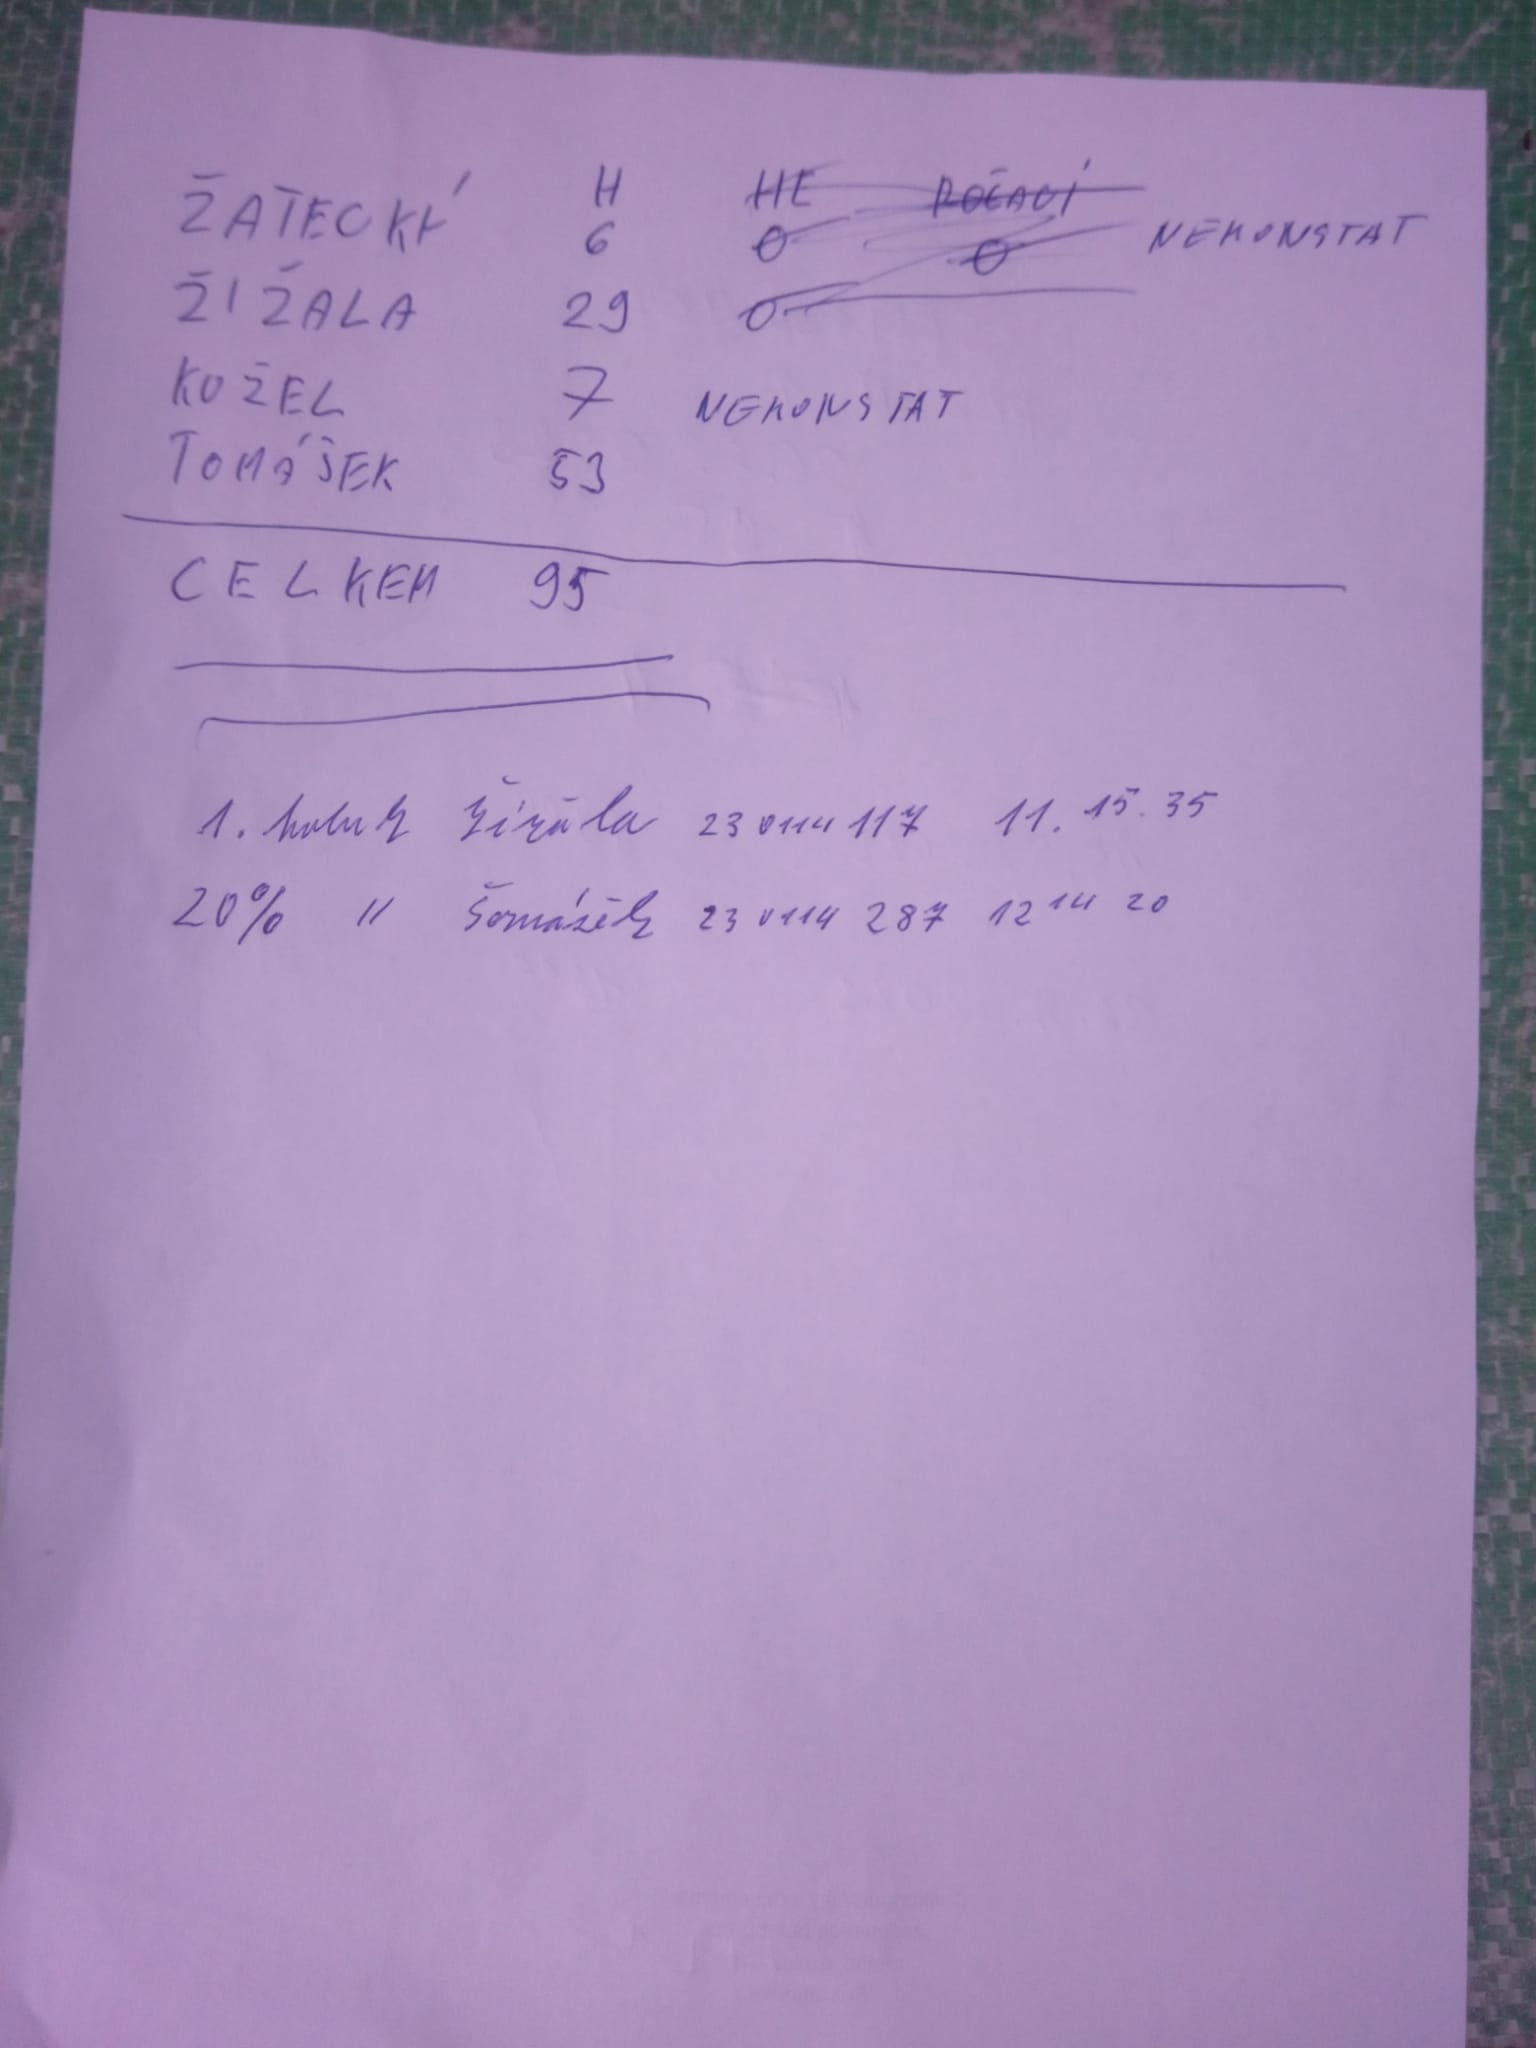 H HE POČAČÍ
ŽATECKÝ 6 0 0 NEKONSTAT
ŽÍŽALA 29 0
KOŽEL 7 NEKONSTAT
TOMÁŠEK 53
CELKEM 95
1. holub Žížala 23 0114 117 11. 15. 35
20% 〃 Tomášek 23 0114 287 12 14 20